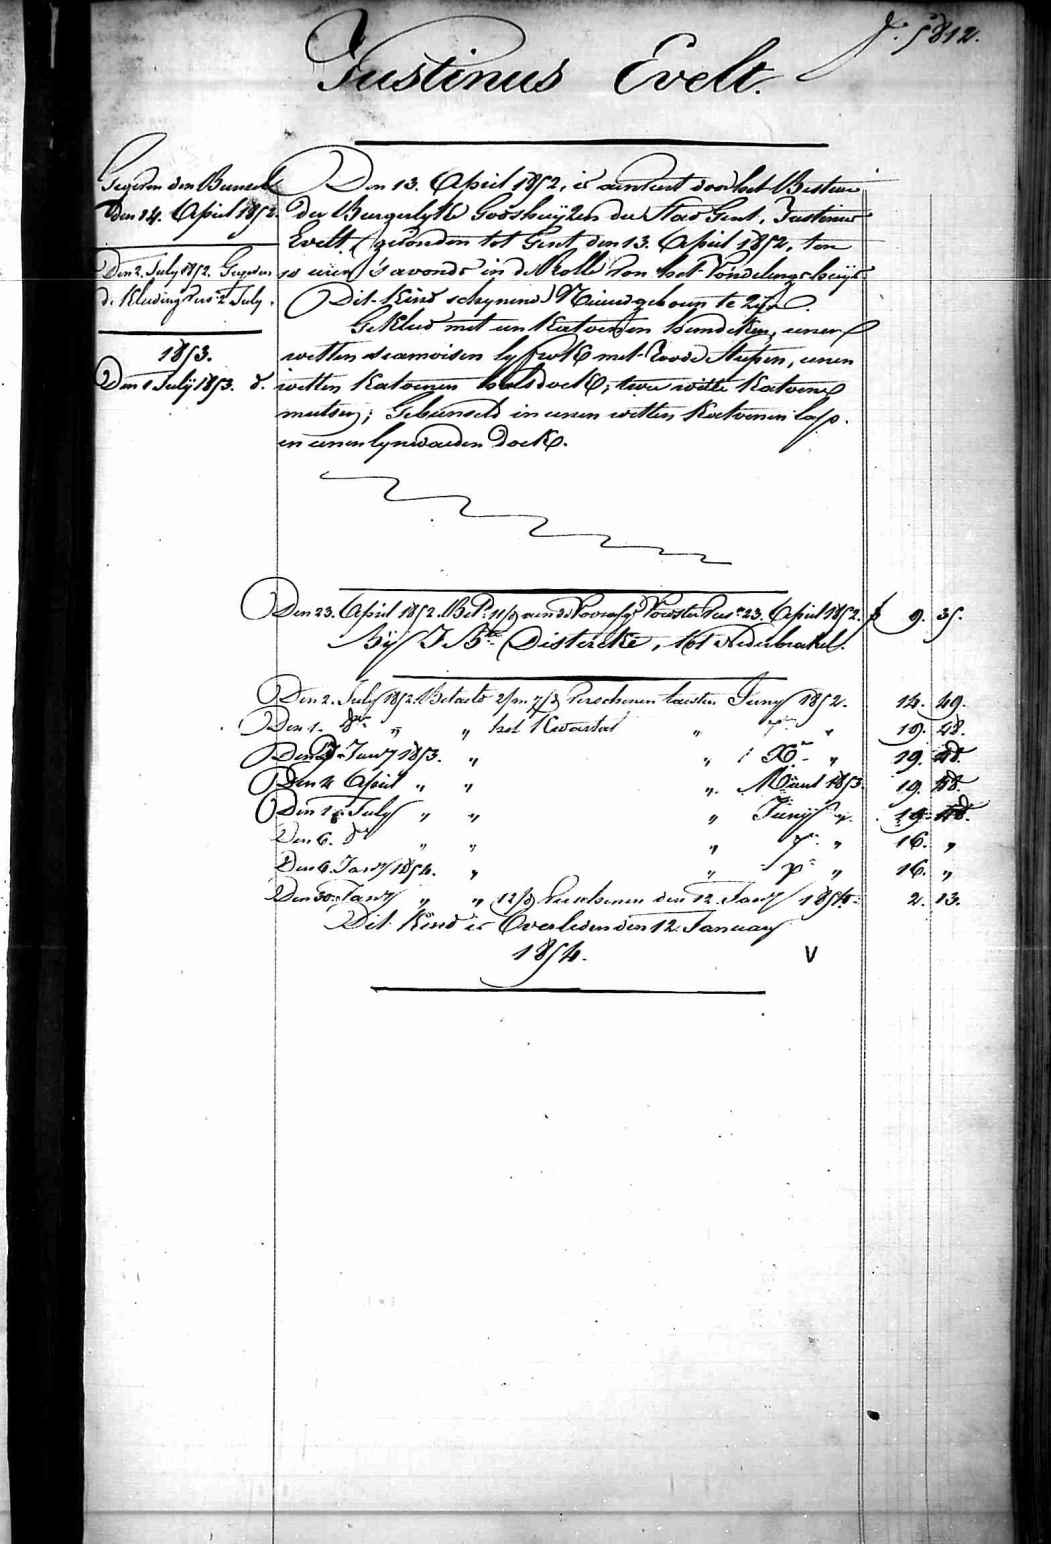 Justinus Evelt.
Gegeven den Bunsel
den 14. April 1852.
Den 2. July 1852. Gegeven
de Kleeding Pers 2 July.
1853.
Den 1 July 1853. d.
Den 13. April 1852, is aenveert door het Bestuer
der Burgerlyke Godshuyzen der Stad Gent, Justinus
Evelt. (gevonden tot Gent, den 13. April 1852, ten
10 uren 's avonds in de Rolle van het Vondelingshuys
Dit Kind schynend Nieuwgeboren te zyn.
Gekleed met een Katoenen hemdeken, eenen
witten siamoisen lyfrok met roode strepen, eenen
witten Katoenen halsdoek; twee witte Katoene
mutsen; Gebunseld in eenen witten Katoenen lap.
en eenen lynwaeden doek.
Den 23. April 1852. Bet. aen de Voedster 23. April 1852. f 9. 35.
Bij J. Bte. Disteecke, tot Nederbrakel.
Den 2. July 1852. Betaeld 2/m 7/d Verschenen laesten Juny 1852. 14. 49.
Den 1. 8bre " " het Kwartael " 7bre " 19. 48.
Den Janry 1853. " " Xbre " 19. 48.
Den 2 April " " " Maert 1853. 19. 48.
Den 1 July " " " Juny " 19. 48.
Den 6. 8bre " " " 7bre " 16. "
Den 6. Janry 1854. " " Xbre " 16. "
Den 30. Janry " " 12/d Verschenen den 12. Janry 1854. 2. 13.
Dit Kind is Overleden den 12. January
1854. V